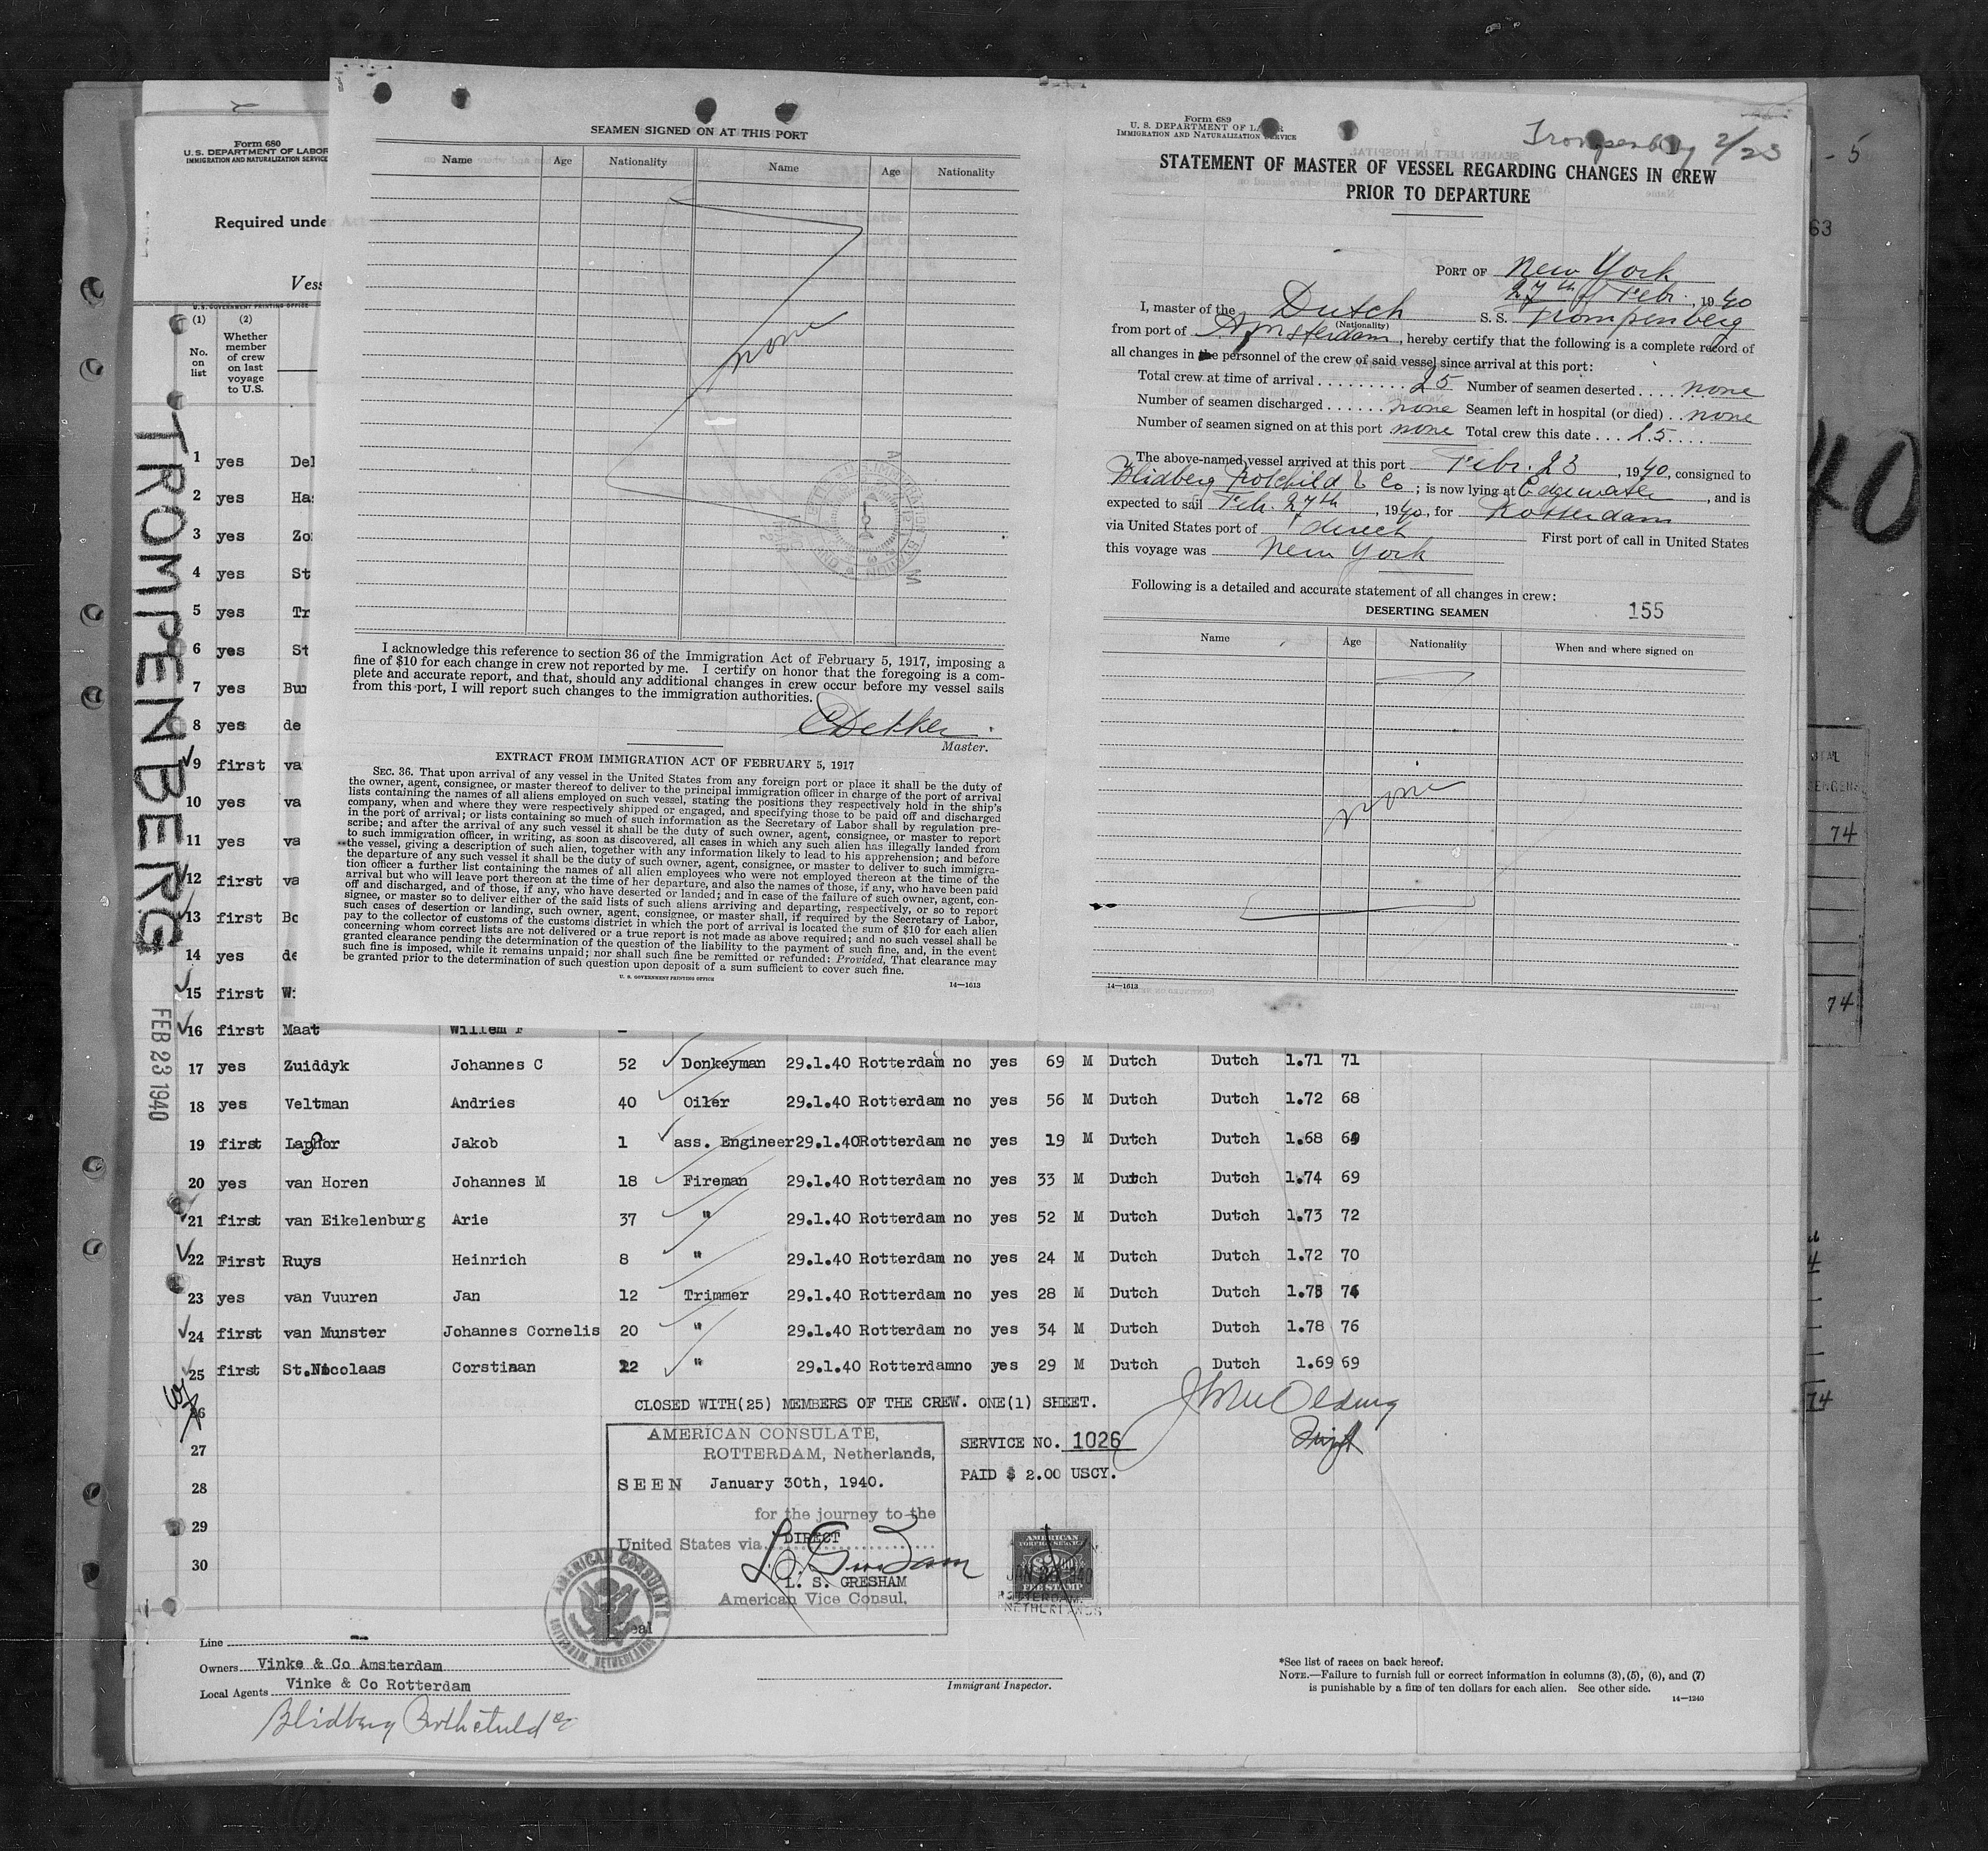 SEAMEN SIGNED ON AT THIS PORT
Name Age Nationality Name Age Nationality
none
I acknowledge this reference to section 36 of the Immigration Act of February 5, 1917, imposing a
fine of $10 for each change in crew not reported by me. I certify on honor that the foregoing is a com-
plete and accurate report, and that, should any additional changes in crew occur before my vessel sails
from this port, I will report such changes to the immigration authorities.
CDekker
Master.
EXTRACT FROM IMMIGRATION ACT OF FEBRUARY 5, 1917
SEC. 36. That upon arrival of any vessel in the United States from any foreign port or place it shall be the duty of
the owner, agent, consignee, or master thereof to deliver to the principal immigration officer in charge of the port of arrival
lists containing the names of all aliens employed on such vessel, stating the positions they respectively hold in the ship's
company, when and where they were respectively shipped or engaged, and specifying those to be paid off and discharged
in the port of arrival; or lists containing so much of such information as the Secretary of Labor shall by regulation pre-
scribe; and after the arrival of any such vessel it shall be the duty of such owner, agent, consignee, or master to report
to such immigration officer, in writing, as soon as discovered, all cases in which any such alien has illegally landed from
the vessel, giving a description of such alien, together with any information likely to lead to his apprehension; and before
the departure of any such vessel it shall be the duty of such owner, agent, consignee, or master to deliver to such immigra-
tion officer a further list containing the names of all alien employees who were not employed thereon at the time of the
arrival but who will leave port thereon at the time of her departure, and also the names of those, if any, who have been paid
off and discharged, and of those, if any, who have deserted or landed; and in case of the failure of such owner, agent, con-
signee, or master so to deliver either of the said lists of such aliens arriving and departing, respectively, or so to report
such cases of desertion or landing, such owner, agent, consignee, or master shall, if required by the Secretary of Labor,
pay to the collector of customs of the customs district in which the port of arrival is located the sum of $10 for each alien
concerning whom correct lists are not delivered or a true report is not made as above required; and no such vessel shall be
granted clearance pending the determination of the question of the liability to the payment of such fine, and, in the event
such fine is imposed, while it remains unpaid; nor shall such fine be remitted or refunded: Provided, That clearance may
be granted prior to the determination of such question upon deposit of a sum sufficient to cover such fine.
U. S. GOVERNMENT PRINTING OFFICE 14—1613
Form 689
U. S. DEPARTMENT OF LABOR
IMMIGRATION AND NATURALIZATION SERVICE
Trompenberg 2/23
STATEMENT OF MASTER OF VESSEL REGARDING CHANGES IN CREW
PRIOR TO DEPARTURE
PORT OF New York
27th of Febr., 1940
I, master of the Dutch S. S. Trompenberg
(Nationality)
from port of Amsterdam, hereby certify that the following is a complete record of
all changes in the personnel of the crew of said vessel since arrival at this port:
Total crew at time of arrival 25 Number of seamen deserted none
Number of seamen discharged none Seamen left in hospital (or died) none
Number of seamen signed on at this port none Total crew this date 25
The above-named vessel arrived at this port Febr. 23, 1940, consigned to
Blidberg Rotchild & Co; is now lying at Edgewater, and is
expected to sail Feb. 27th, 1940, for Rotterdam
via United States port of direct First port of call in United States
this voyage was New York
Following is a detailed and accurate statement of all changes in crew:
DESERTING SEAMEN 155
Name Age Nationality When and where signed on
none
14—1613
Form 680
U. S. DEPARTMENT OF LABOR
IMMIGRATION AND NATURALIZATION SERVICE
Required unde
Vess
U. S. GOVERNMENT PRINTING OFFICE
(1) (2)
No. on list
Whether member of crew on last voyage to U.S.
TROMPENBERG
FEB 23 1940
1 yes Del
2 yes Has
3 yes Zo
4 yes St
5 yes Tr
6 yes St
7 yes Bur
8 yes de
9 first va
10 yes va
11 yes va
12 first va
13 first Bo
14 yes de
15 first Wi
16 first Maat Willem F
17 yes Zuiddyk Johannes C 52 Donkeyman 29.1.40 Rotterdam no yes 69 M Dutch Dutch 1.71 71
18 yes Veltman Andries 40 Oiler 29.1.40 Rotterdam no yes 56 M Dutch Dutch 1.72 68
19 first Jakob 1 ass. Engineer 29.1.40 Rotterdam no yes 19 M Dutch Dutch 1.68
20 yes van Horen Johannes M 18 Fireman 29.1.40 Rotterdam no yes 33 M Dutch Dutch 1.74 69
21 first van Eikelenburg Arie 37 " 29.1.40 Rotterdam no yes 52 M Dutch Dutch 1.73 72
22 First Ruys Heinrich 8 " 29.1.40 Rotterdam no yes 24 M Dutch Dutch 1.72 70
23 yes van Vuuren Jan 12 Trimmer 29.1.40 Rotterdam no yes 28 M Dutch Dutch
24 first van Munster Johannes Cornelis 20 " 29.1.40 Rotterdam no yes 34 M Dutch Dutch 1.78 76
25 first St.Nicolaas Corstiaan 12 " 29.1.40 Rotterdam no yes 29 M Dutch Dutch 1.69 69
26
27
28
29
30
CLOSED WITH(25) MEMBERS OF THE CREW. ONE(1) SHEET.
AMERICAN CONSULATE,
ROTTERDAM, Netherlands,
SEEN January 30th, 1940.
for the journey to the
United States via DIRECT
L. S. GRESHAM
American Vice Consul.
AMERICAN CONSULATE
ROTTERDAM, NETHERLANDS
SERVICE NO. 1026
PAID $ 2.00 USCY.
AMERICAN
FOREIGN SERVICE
$2.00
FEE STAMP
JAN 30 1940
ROTTERDAM,
NETHERLANDS
Line
Owners Vinke & Co Amsterdam
Local Agents Vinke & Co Rotterdam
Immigrant Inspector.
*See list of races on back hereof.
NOTE.—Failure to furnish full or correct information in columns (3), (5), (6), and (7)
is punishable by a fine of ten dollars for each alien. See other side.
14—1240
- 5
63
40
74
74
74